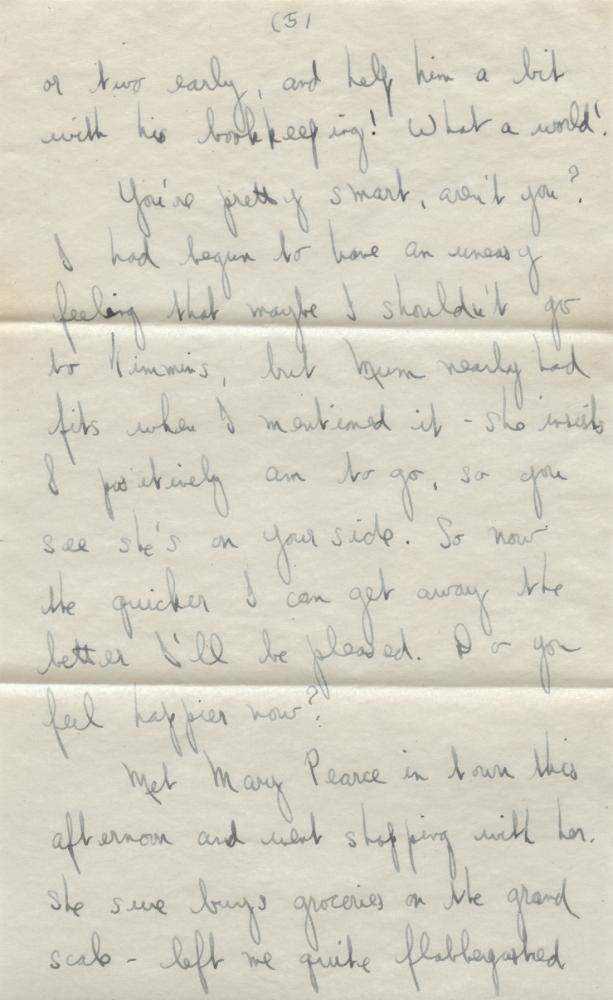 (5)
or two early, and help him a bit
with his bookkeeping! What a world!
You're pretty smart, aren't you?
I had begun to have an uneasy
feeling that maybe I shouldn't go
to Kimmins, but Mum nearly had
fits when I mentioned it - she insists
I positively am to go, so you
see she's on your side. So now
the quicker I can get away the
better I'll be pleased. Do you
feel happier now?
Met Mary Pearce in town this
afternoon and went shopping with her.
She sure buys groceries on the grand
scale - left me quite flabbergasted